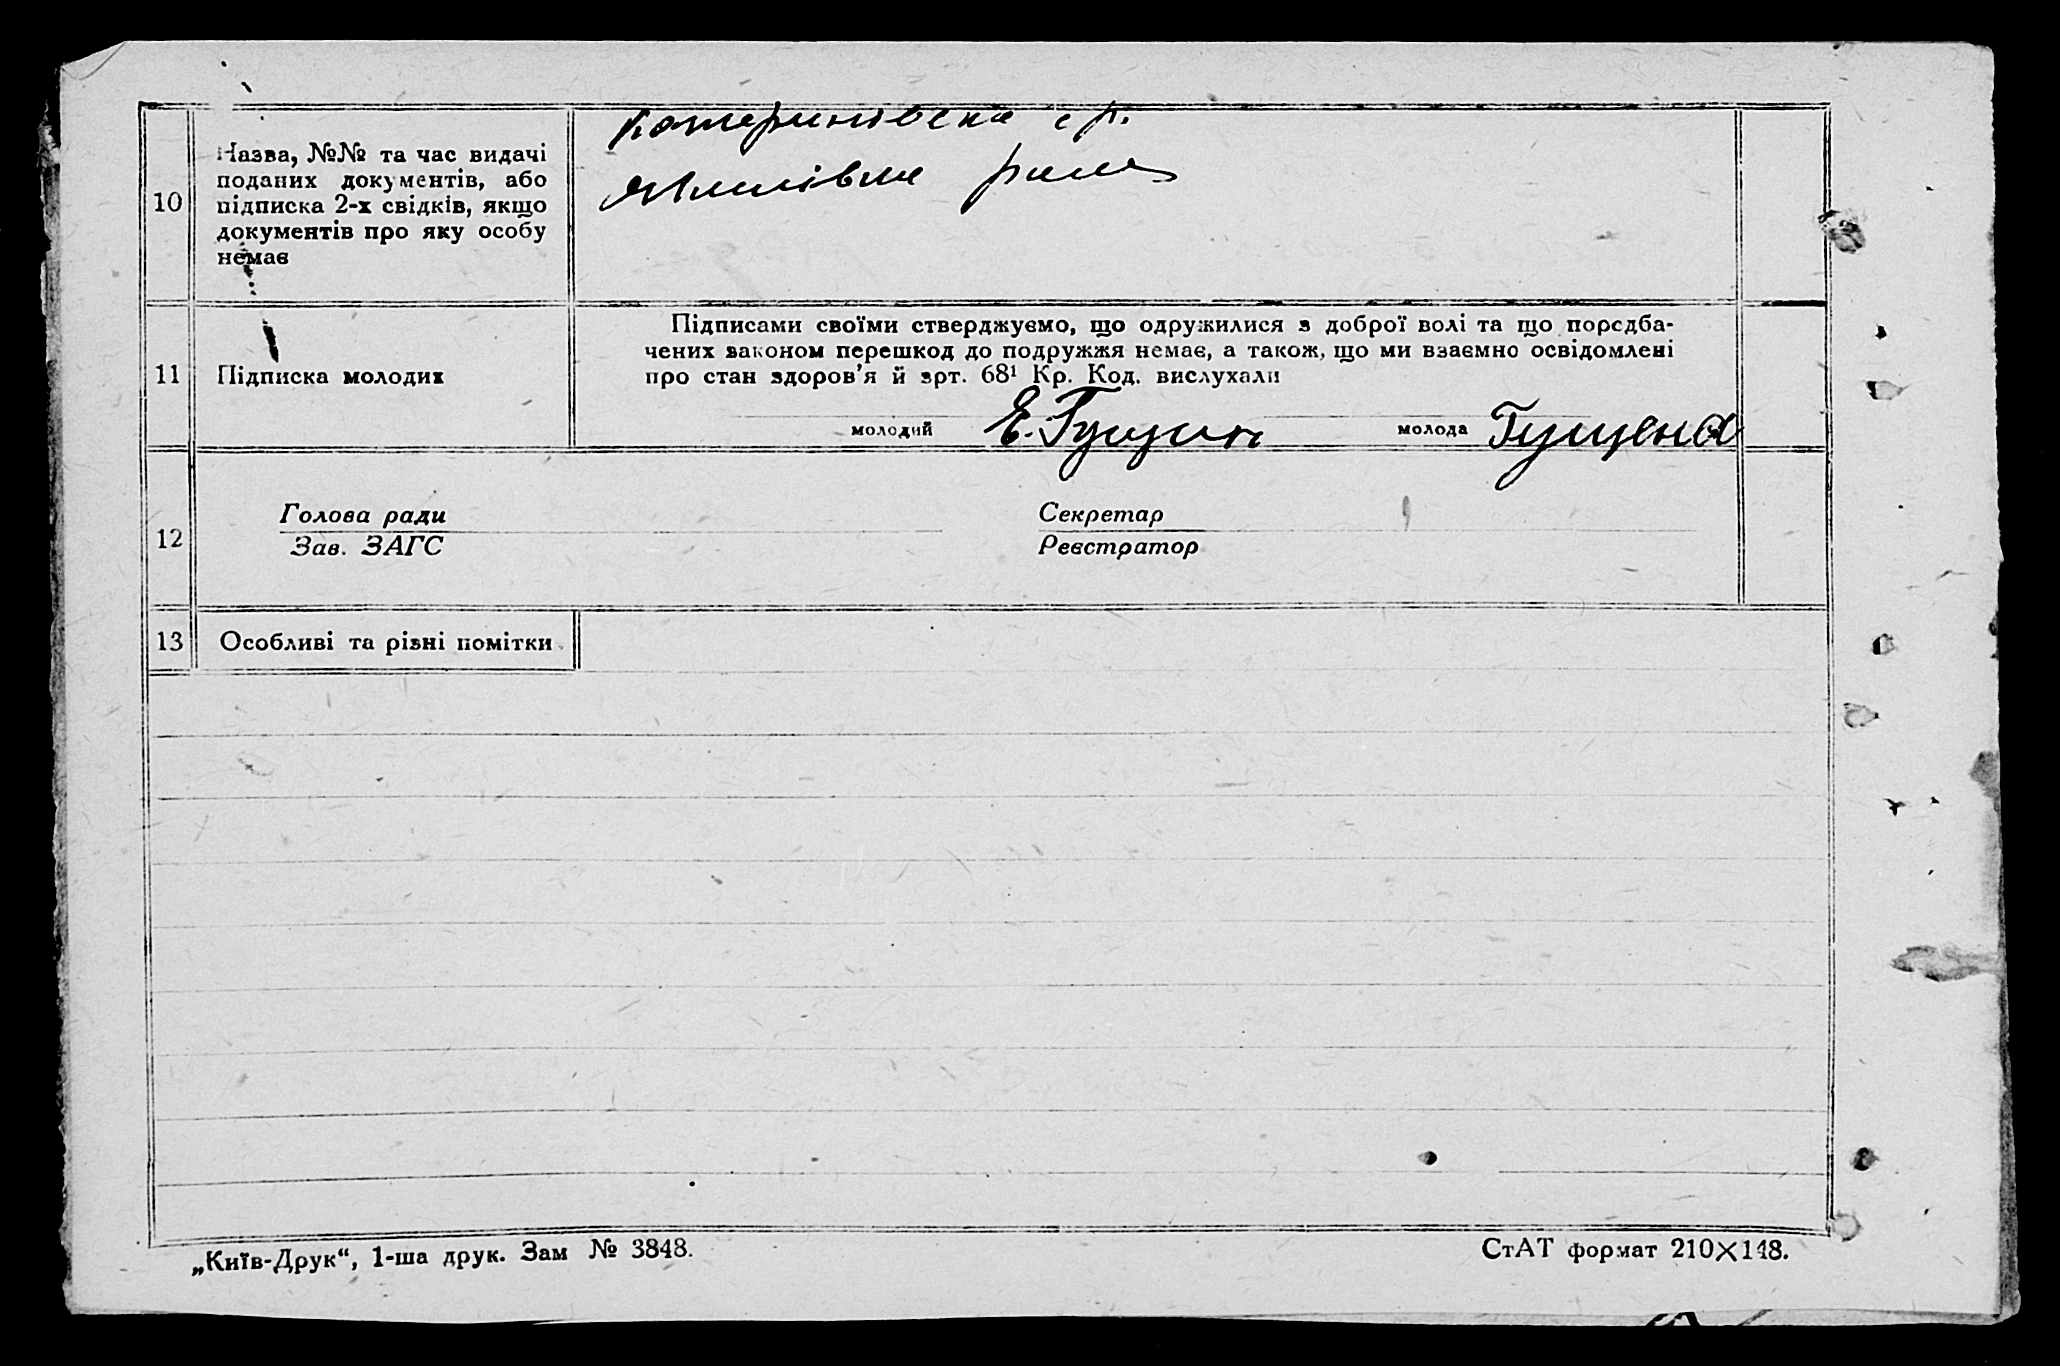 10
Назва, №№ та час видачі
поданих документів, або
підписка 2-х свідків, якщо
документів про яку особу
немає
Катеринівська с/р.
рада
11
Підписка молодих
Підписами своїми стверджуємо, що одружилися з доброї волі та що порєдба-
чених законом перешкод до подружжя немає, а також, що ми взаємно освідомлені
про стан здоров’я й арт. 68¹ Кр. Код. вислухали
молодий Е. Гущин молода Гущена
12
Голова ради
Зав. ЗАГС
Секретар
Реєстратор
13
Особливі та різні помітки
„Київ-Друк“, 1-ша друк. Зам № 3848.
СтАТ формат 210×148.